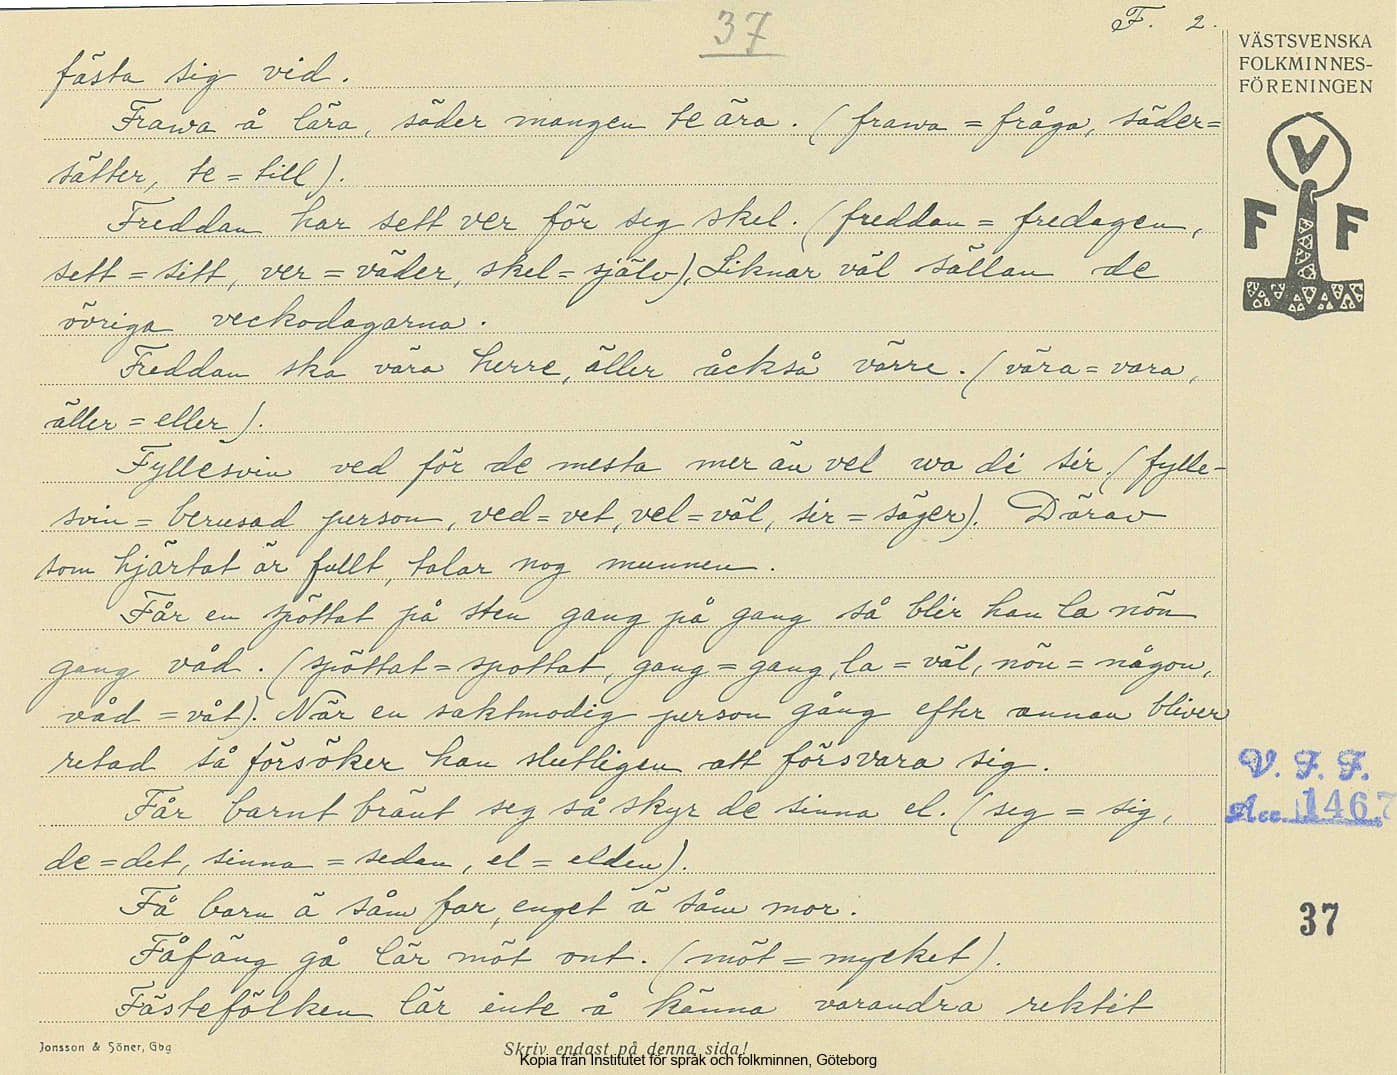 37
F. 2.
VÄSTSVENSKA
FOLKMINNES-
FÖRENINGEN
V
F F
fästa sig vid.
Frawa å lära, säder mangen te ära. (frawa = fråga, säder=
sätter, te = till).
Freddan har sett ver för seg skel. (freddan = fredagen,
sett = sitt, ver = väder, skel = själv). Liknar väl sällan de
övriga veckodagarna.
Freddan ska våra herre, äller åckså värre. (våra = vara,
äller = eller).
Fyllesvin ved för de mesta mer än vel wa dé sér. (fylle-
svin = berusad person, ved = vet, vel = väl, sér = säger). Därav
som hjärtat är fullt, talar nog munnen.
Får en spöttat på sten gang på gang så blir han la nön
gang våd. (spöttat = spottat, gang = gang, la = väl, nön = någon,
våd = våt). När en saktmodig person gång efter annan bliver
retad så försöker han slutligen att försvara sig.
Får barnt bränt seg så skyr de sinna el. (seg = sig,
de = det, sinna = sedan, el = elden).
Få barn ä såm far, enget ä såm mor.
Fåfäng gå lär möt ont. (möt = mycket).
Fästefölken lär inte å känna varandra rektit
V. F. F.
Acc. 1467
37
Jonsson & Söner, Gbg
Skriv endast på denna sida!
Kopia från Institutet för språk och folkminnen, Göteborg